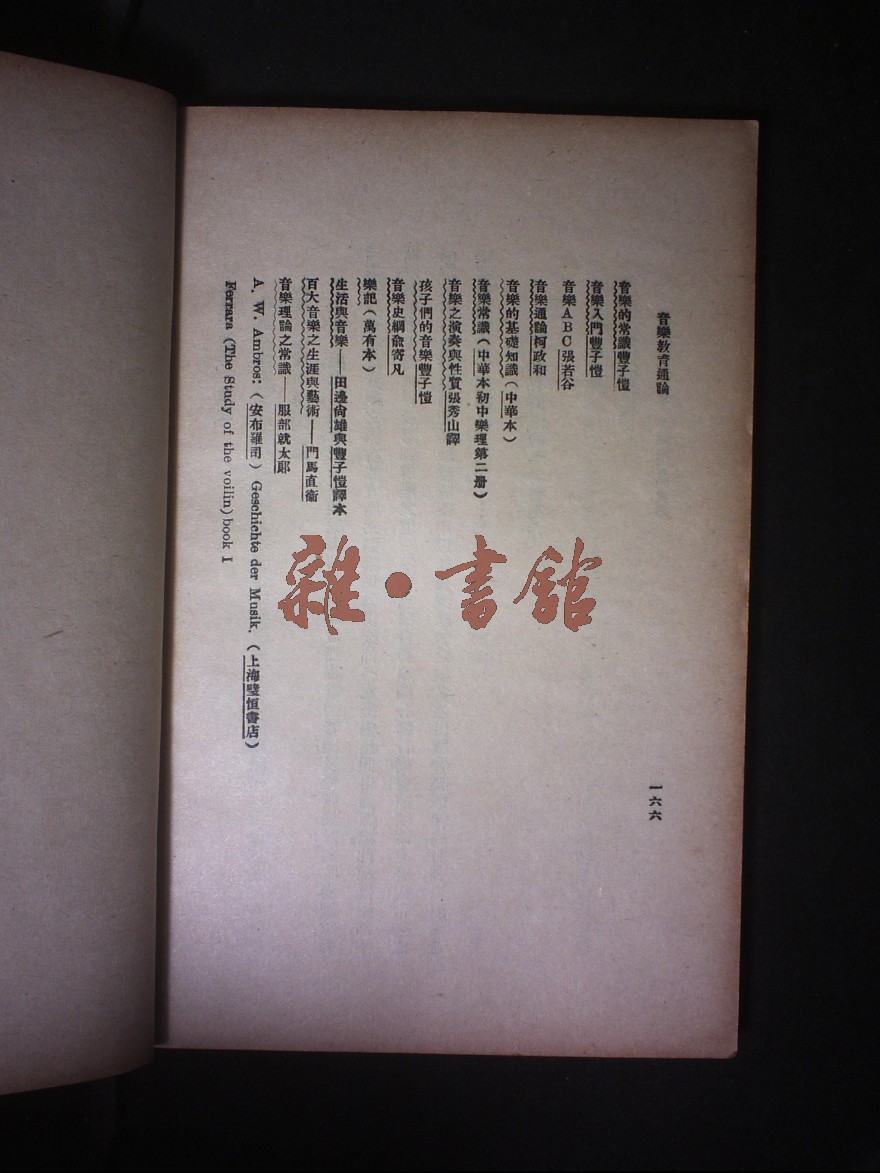 音樂教育通論
音樂的常識豐子愷
音樂入門豐子愷
音樂ABC張若谷
音樂通論柯政和
音樂的基礎知識(中華本)
音樂常識(中華本初中樂理第二册)
音樂之演奏與性質張秀山譯
孩子們的音樂豐子愷
音樂史綱俞寄凡
樂記(萬有本)
生活與音樂——田邊尙雄與豐子愷譯本
百大音樂之生涯與藝術——門馬直衞
音樂理論之常識——服部就太郞
A. W. Ambros: (安布羅司) Geschichte der Musik. (上海璧恒書店)
Ferrara (The Study of the voilin) book I
一六六
雜·書館